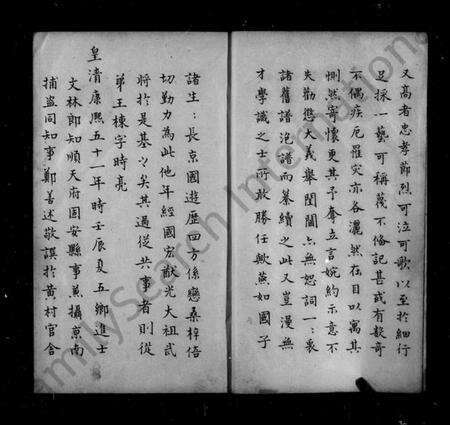 又高者忠孝節烈可泣可歌以至於細行
足採一藝可稱蔑不備記甚或有數奇
不偶疾厄罹灾亦各灑然在目以寓其
惻然寄懷更其予奪立言婉約示意不
失勸懲之義舉閭閻亦無恕詞一一衷
諸舊譜洺譜而纂續之此又豈漫無
才學識之士所敢勝任歟燕如國子
諸生長京國遊歷四方係戀桑梓倍
切勤力為此他年經國宏猷光大祖武
將於是基之矣其過從共事者則從
弟王棟字時亮
皇清康熙五十一年時壬辰夏五鄉進士
文林郎知順天府固安縣事兼攝東南
捕盜同知事鄭善述敬譔於黄村官舍
FamilySearch International